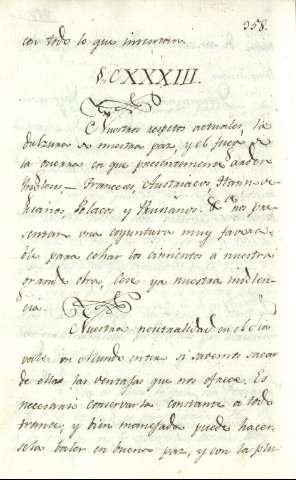 358.
con todo lo que inventan.
§. CXXXIII.
Nuestros respetos actuales, la
dulzura de nuestra paz, y el fuego de
la Guerra en que presentemente arden
Ingleses, Franceses, Austriacos, Hannove-
rianos, Polacos y Rusianos nos pre-
sentan una coyuntura muy favora-
ble para echar los cimientos a nuestra
grande obra, Cese ya nuestra indolen-
cia.
Nuestra neutralidad en el dia
vale un Mundo entero si sabemos sacar
de ella las ventajas que nos ofrece. Es
necesario conservarla constante a todo
trance, y bien manejada puede hacer-
sela valer en buena paz, y con la plu